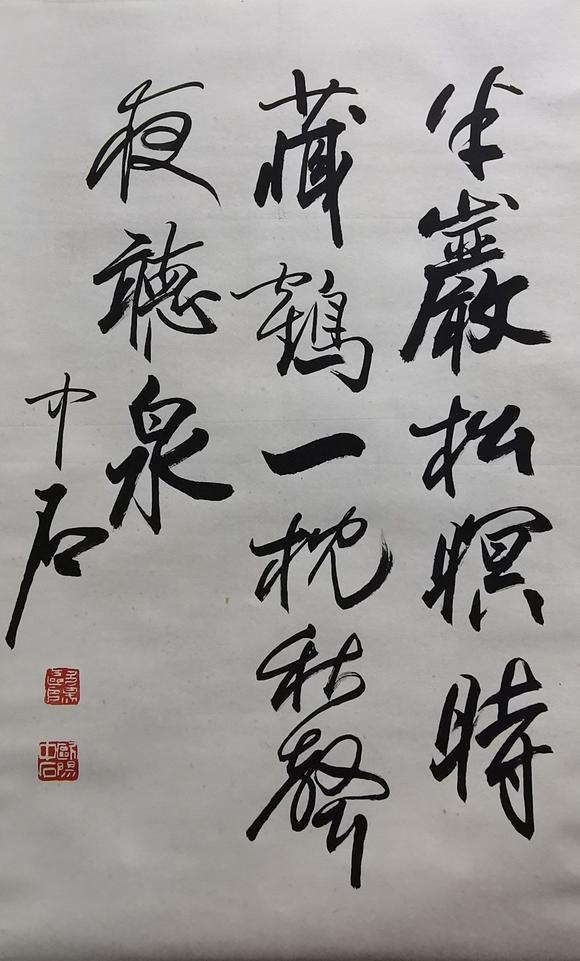 半巖松暝時
藏鶴一枕秋聲
夜聽泉
中石
歐陽
中石